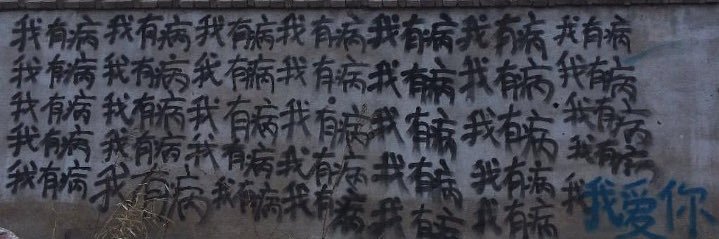 我有病 我有病 我有病 我有病 我有病 我有病 我有病
我有病 我有病 我有病 我有病 我有病 我有病 我有病
我有病 我有病 我有病 我有病 我有病 我有病 我有病
我有病 我有病 我有病 我有病 我有病 我有病 我有病
我有病 我有病 我有病 我有病 我有病 我有病 我
我爱你